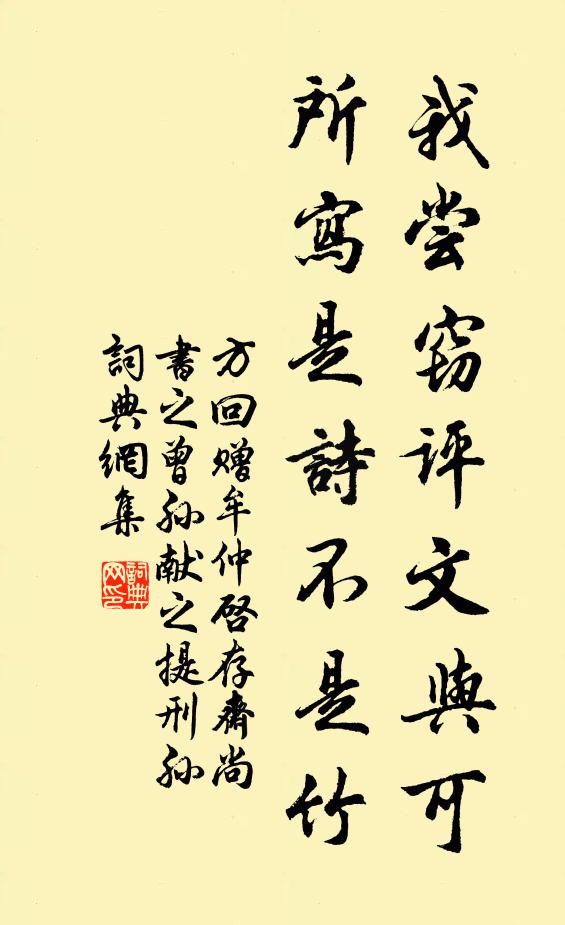 我尝窃評文與可
所寫是詩不是竹
方回赠牟仲啓存齋尚
書之曾孙献之提刑孙
詞典網集
詞典
网印